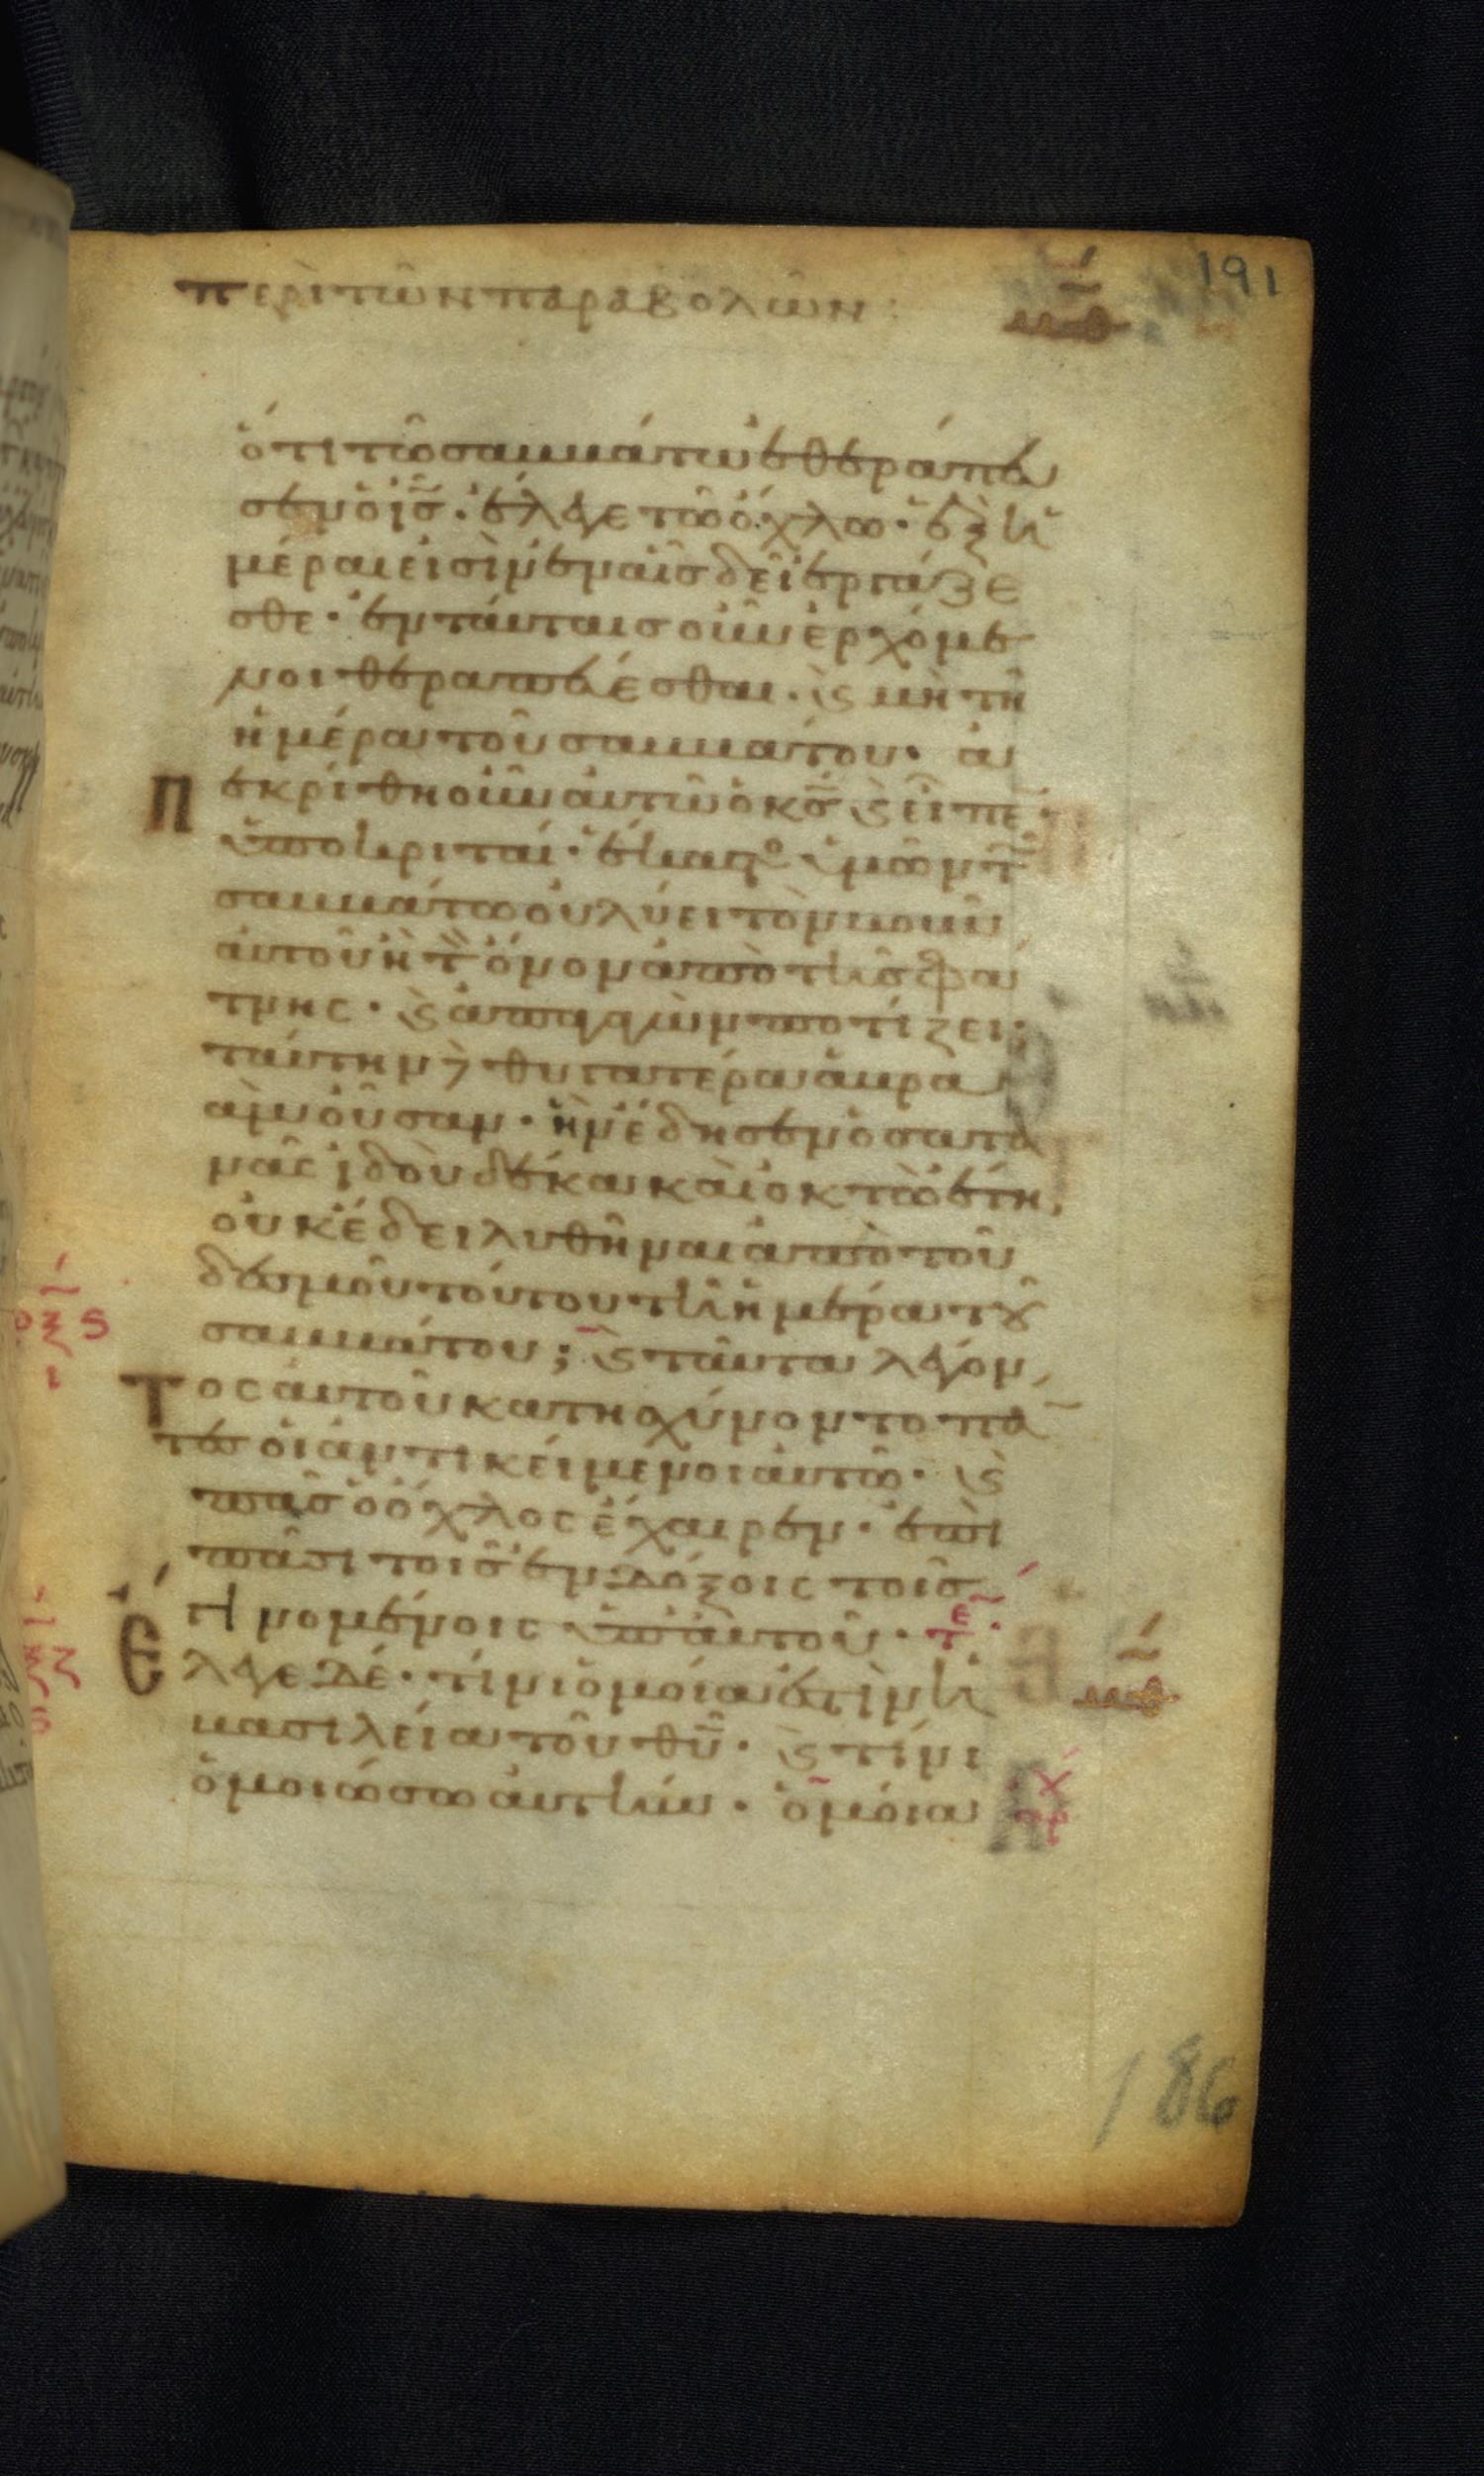 περὶ τῶν παραβολῶν :
μβ
191
ὅτι τῶ σαββάτω ἐθεράπευ
σεν ὁ ις̄· ἔλεγε τῶ ὄχλω· ἓξ ἡ
μέραι εἰσὶν ἐν αἷς δεῖ ἐργάζε
σθε· ἐν ταύταις οὖν ἐρχόμε
νοι θεραπεύεσθαι· ϗ μὴ τῆ
ἡμέρα τοῦ σαββάτου· ἀ
πεκρίθη οὖν αὐτῶ ὁ κς̄ ϗ εἶπε·
ὑποκριταί· ἕκαστο ὑμῶν τ
σαββάτω οὐ λύει τὸν βοῦν
αὐτοῦ ἢ τ ὄνον ἀπὸ τῆς φά
τνης· ϗ ἀπαγαγὼν ποτίζει;
ταύτην δὲ θυγατέρα ἀβρα
ὰμ οὖσαν· ἣν ἔδησεν ὁ σατα
νᾶς ἰδοὺ δέκα καὶ ὀκτὼ ἔτη,
οὐκ ἔδει λυθῆναι ἀπὸ τοῦ
δεσμοῦ τούτου τῆ ἡμέρα τοῦ
σαββάτου; ϗ ταῦτα λέγον
τος αὐτοῦ κατησχύνοντο πά
τες οἱ ἀντικείμενοι αὐτῶ· ϗ
πᾶς ὁ ὄχλος ἔχαιρεν· ἐπὶ
πᾶσι τοῖς ἐνδόξοις τοῖς
γινομένοις ὑπ' αὐτοῦ· τε
ἔλεγε δέ· τίνι ὁμοία ἐστὶν ἡ
βασιλεία τοῦ θῦ· ϗ τίνι
ὁμοιώσω αὐτήν· ὁμοία
ρξς
ι
ρξζ
μβ
186